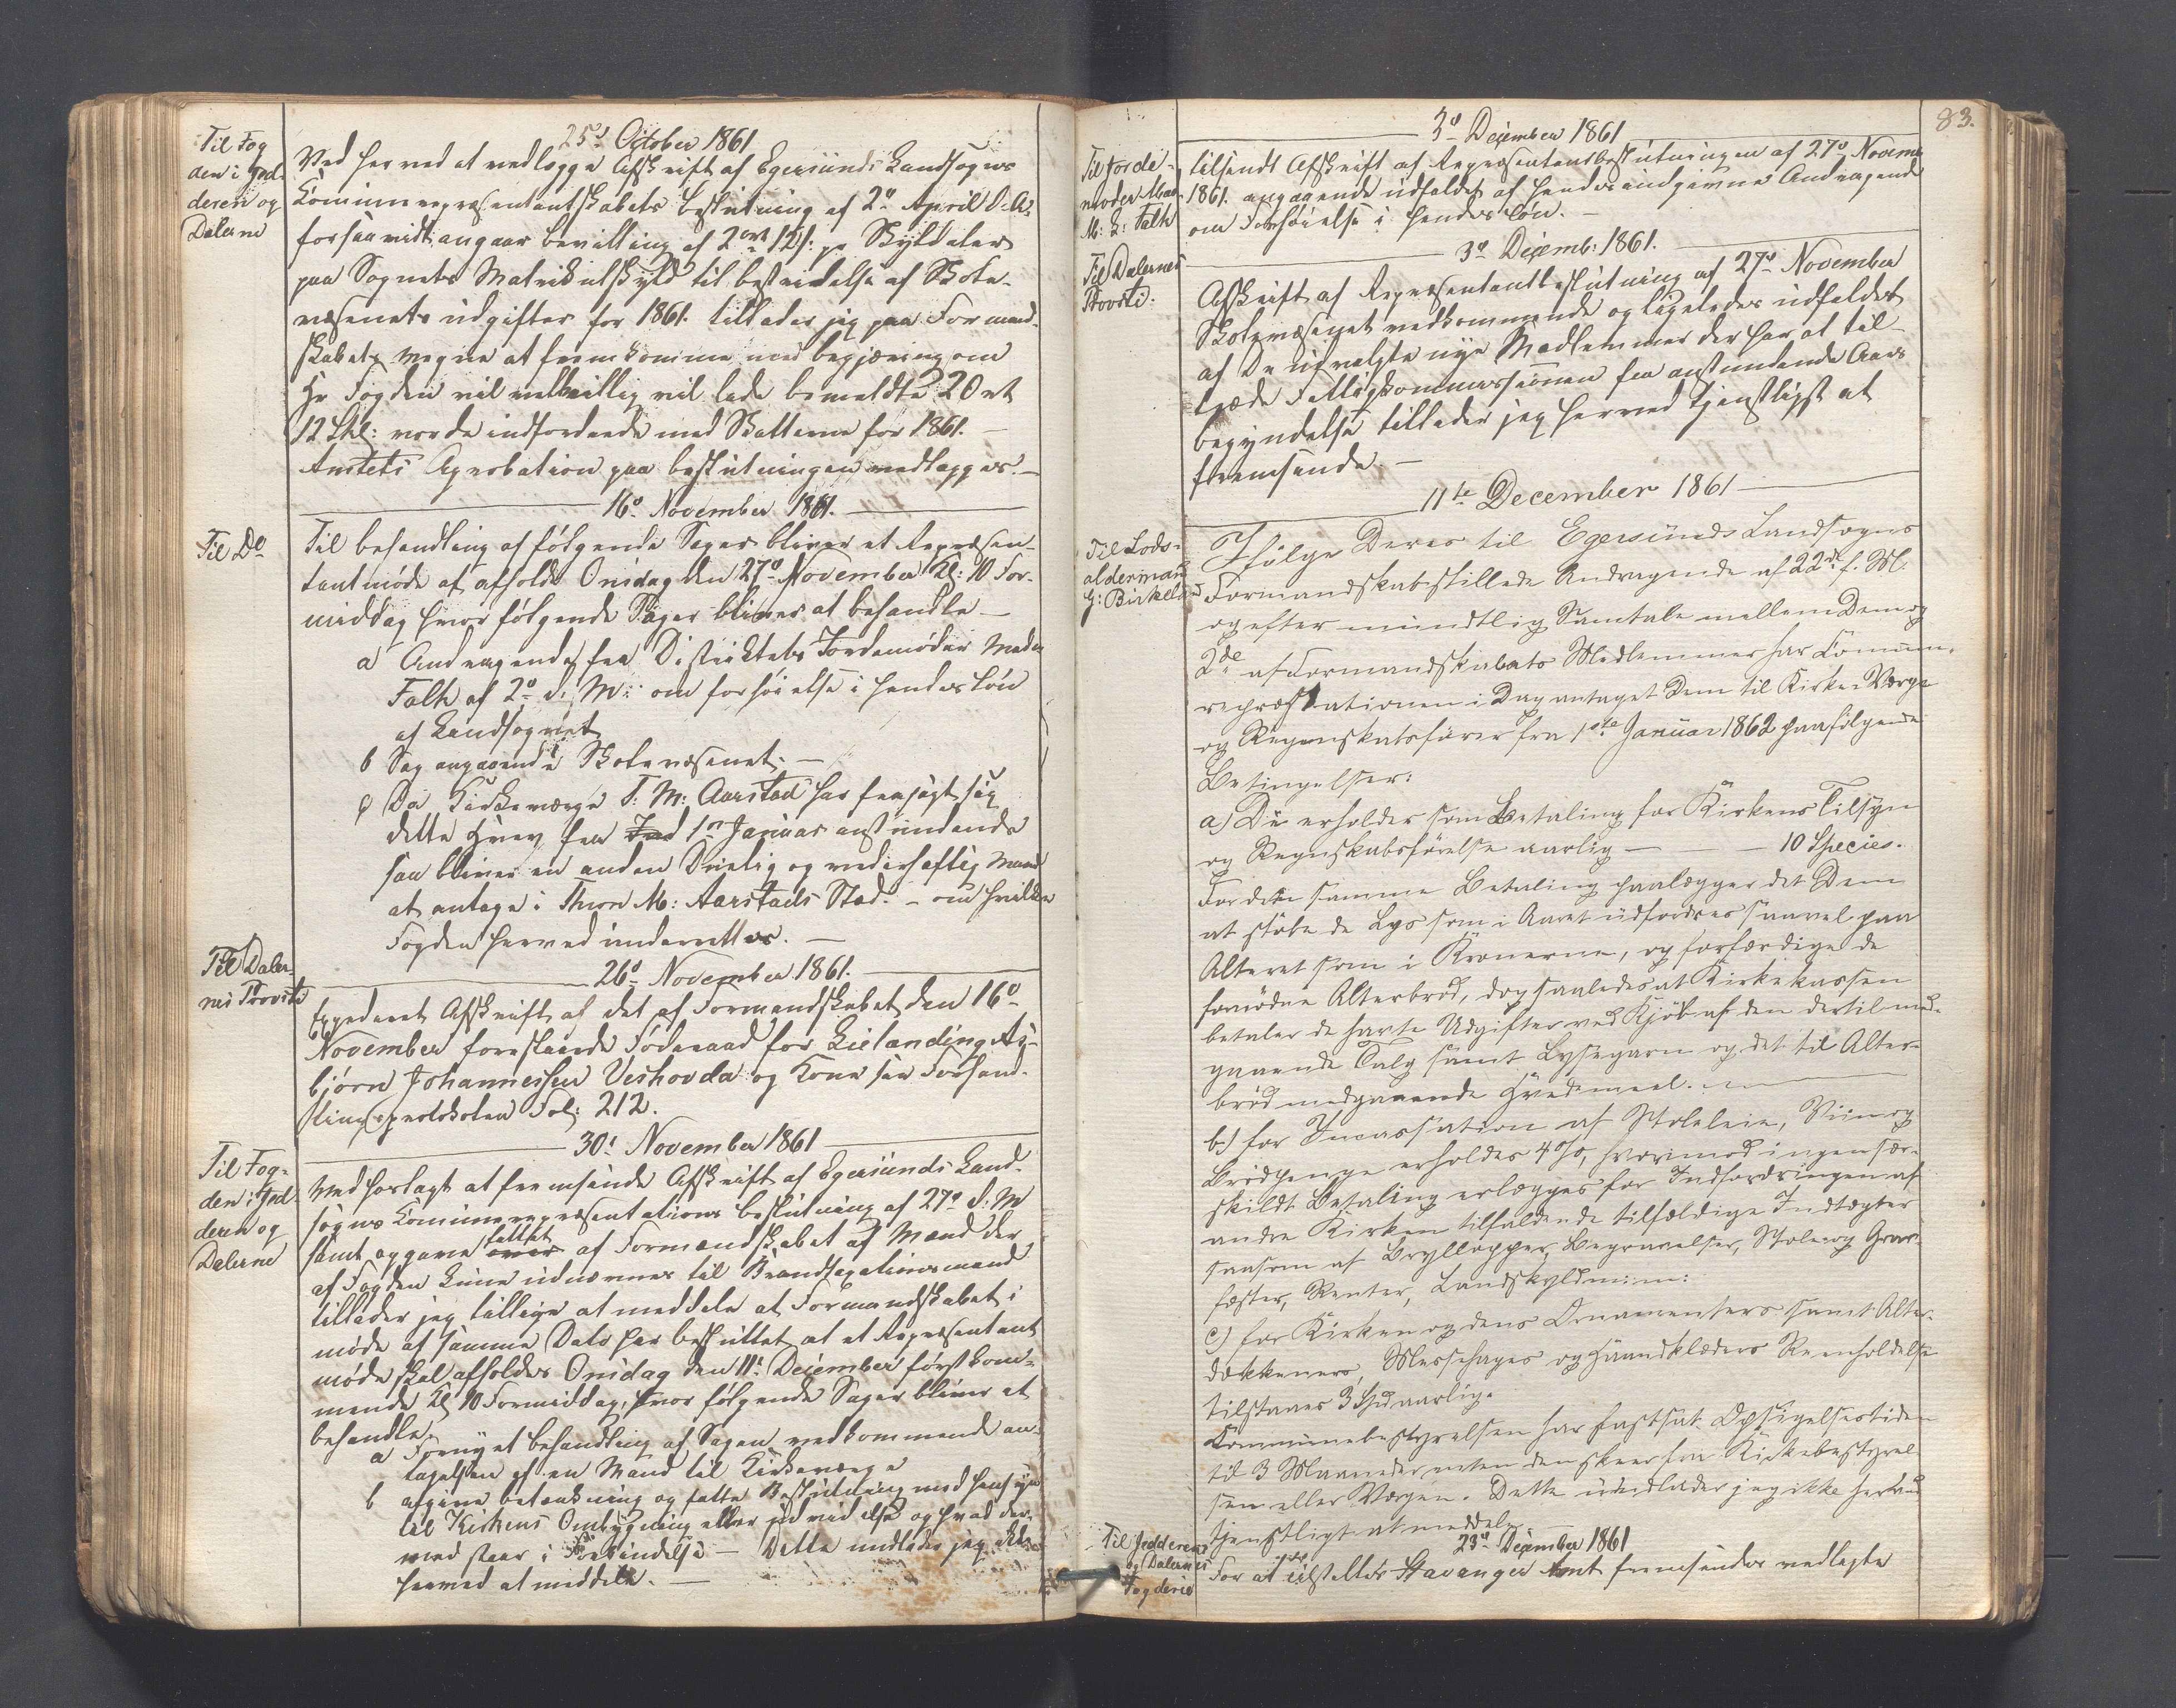 25de October 1861
Til Fog
den i Jæd-
deren og
Dalerne
Ved herved at vedlægge Afskrift af Egersunds Landsogns
Kommunerepræsentantskabets beslutning af 2de April d. A.
forsaavidt angaar bevilling af 2 ort 12 s. pr Skylddaler
paa Sognets Matrikulskyld til bestridelse af Skole-
væsenets udgifter for 1861. tillader jeg paa Formand-
skabets vegne at fremkomme med begjæring om
Hr Fogden vil velvillig vil lade bemeldte 2 Ort
12 Skl: vorde indfordrede med Skatterne for 1861. —
Amtets Aprobation paa beslutningen vedlægges. —
16de November 1861.
Til Do
Til behandling af følgende Sager bliver et Repræsen-
tantmøde at afholde Onsdag den 27de November Kl: 10 For-
middag hvor følgende Sager bliver at behandle —
a Andragende fra Distriktets Jordemoder Madm
Falk af 2de d. M: om forhøielse i hendes løn
af Landsognet
b Sag angaaende Skolevæsenet. —
c Da Kirkeværge T. M: Aarstad har frasagt sig
dette Hverv fra 1ste Januar anstundende
saa bliver en anden Duelig og vederhæftig Mand
at antage i Thron M: Aarstads Sted. — om hvilke
Fogden herved underrettes. —
26de November 1861.
Til Daler-
nes Provsti
Expederet Afskrift af det af Formandskabet den 16de
November foreslaaede Føderaad for Lielænding As-
bjørn Johannessen Veshovda og Kone see Forhand-
lingsprotokolen Fol: 212.
30te November 1861
Til Fog-
den i Jæd-
deren og
Dalerne
Ved herlagt at fremsende Afskrift af Egersunds Land-
sogns Kommunerepræsentations beslutning af 27de d. M
samt opgave fattet af Formandskabet af Mænd der
af Fogden kunne udnævnes til Brandtaxationsmænd
tillader jeg tillige at meddele at Formandskabet i
møde af samme Dato har besluttet at et Repræsentant
møde skal afholdes Onsdag den 11te December førstkom-
mende Kl 10 Formiddag, hvor følgende Sager bliver at
behandle.
a Fornyet behandling af Sagen vedkommende an-
tagelsen af en Mand til Kirkeværge
b afgive betænkning og fatte Beslutning med Hensyn
til Kirkens Ombygning eller udvidelse og hvad der-
med staar i Forbindelse — Dette undlader jeg ikke
herved at meddele. —
83.
3de December 1861
Til Jorde-
moder Mad
M: L: Falk
tilsendt Afskrift af Repræsentantbeslutningen af 27de Novemb
1861. angaaende udfaldet af hendes indgivne Andragende
om Forhøielse i hendes løn. —
3de Decemb: 1861.
Til Dalernes
Provsti.
Afskrift af Repræsentantbeslutning af 27de November
Skolevæsenet vedkommende og ligeledes udfaldet
af De udvalgte nye Medlemmer der har at til-
træde Fattigkommissionen fra anstundende Aars
begyndelse tillader jeg herved tjenstligst at
fremsende —
11te December 1861
Til Lods-
olderman
G: Birkeland
Ifølge Deres til Egersunds Landsogns
Formandskab stillede Andragende af 22de f. M.
og efter mundtlig Samtale mellem Dem og
2de af Formandskabets Medlemmer har Commune-
repræsentationen i Dag antaget Dem til Kirke-Værge
og Regnskabsfører fra 1ste Januar 1862 paa følgende
Betingelser:
a) De erholder som Betaling for Kirkens Tilsyn
og Regnskabsførelse aarlig — — — 10 Species.
For den samme Betaling paalægger det Dem
at støbe de Lys som i Aaret udfordres saavel paa
Alteret som i Kronerne, og forfærdige de
fornødne Alterbrød, dog saaledes at Kirkekassen
betaler de havte Udgifter ved Kjøb af den dertil med-
gaaende Talg samt Lysegarn og det til Alter-
brød medgaaende Hvedemeel. —
b) for Incassation af Stoleleie, Viin og
Brødpenge erholdes 4 %, hvorimod ingen sær-
skildt Betaling erlægges for Indfordringen af
andre Kirken tilfaldende tilfældige Indtægter
saasom af Bryllopper, Begravelser, Stole og Grav-
fæster, Renter, Landskyld m: m:
c) for Kirken og dens Ornamenters samt Alter-
dækkeners, Messehages og Haandklæders Reenholdelse
tilstaaes 3 Spd aarlig.
Communebestyrelsen har fastsat Opsigelsestiden
til 3 Maaneder enten den skeer fra Kirkebestyrel-
sen eller Værgen. Dette undlader jeg ikke herved
tjenstligt at meddele
23de December 1861
Til Jedderens
og Dalernes
Fogderie
For at tilstilles Stavanger Amt fremsendes vedlagte